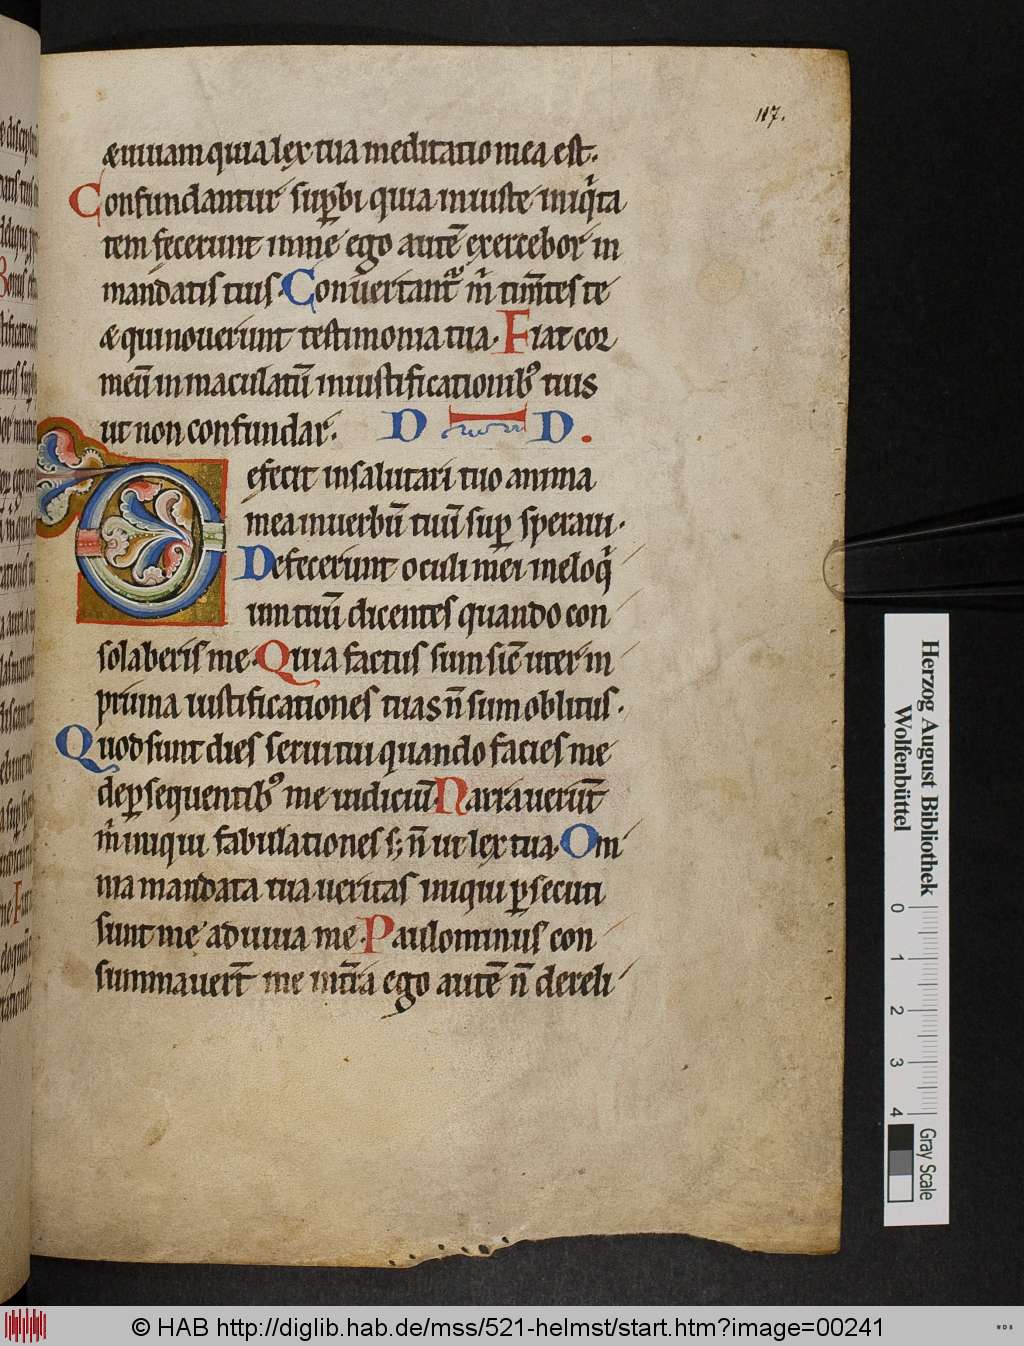 117.
& uiuam quia lex tua meditatio mea est.
Confundantur suꝑbi quia iniuste iniqͥta
tem fecerunt in me ego autē exercebor in
mandatis tuis. Conuertantᷣ m̄ timētes te
& qui nouerunt testimonia tua. Fiat cor
meū inmaculatū in iustificationibꝰ tuis
ut non confundar. D D.
Defecit in salutari tuo anima
mea in uerbū tuū suꝑ speraui.
Defecerunt oculi mei in eloqͥ
um tuū dicentes quando con
solaberis me. Quia factus sum sic̄ uter in
pruina iustificationes tuas n̄ sum oblitus.
Quod sunt dies serui tui quando facies me
de ꝑsequentibꝰ me iudiciū. Narrauerūt
m̄ iniqui fabulationes s; n̄ ut lex tua. Om
nia mandata tua ueritas iniqui ꝑsecuti
sunt me adiuua me. Paulominus con
summauer̄t me in tr̄ra ego autē n̄ dereli
Herzog August Bibliothek
Wolfenbüttel
0 1 2 3 4
Gray Scale
© HAB http://diglib.hab.de/mss/521-helmst/start.htm?image=00241